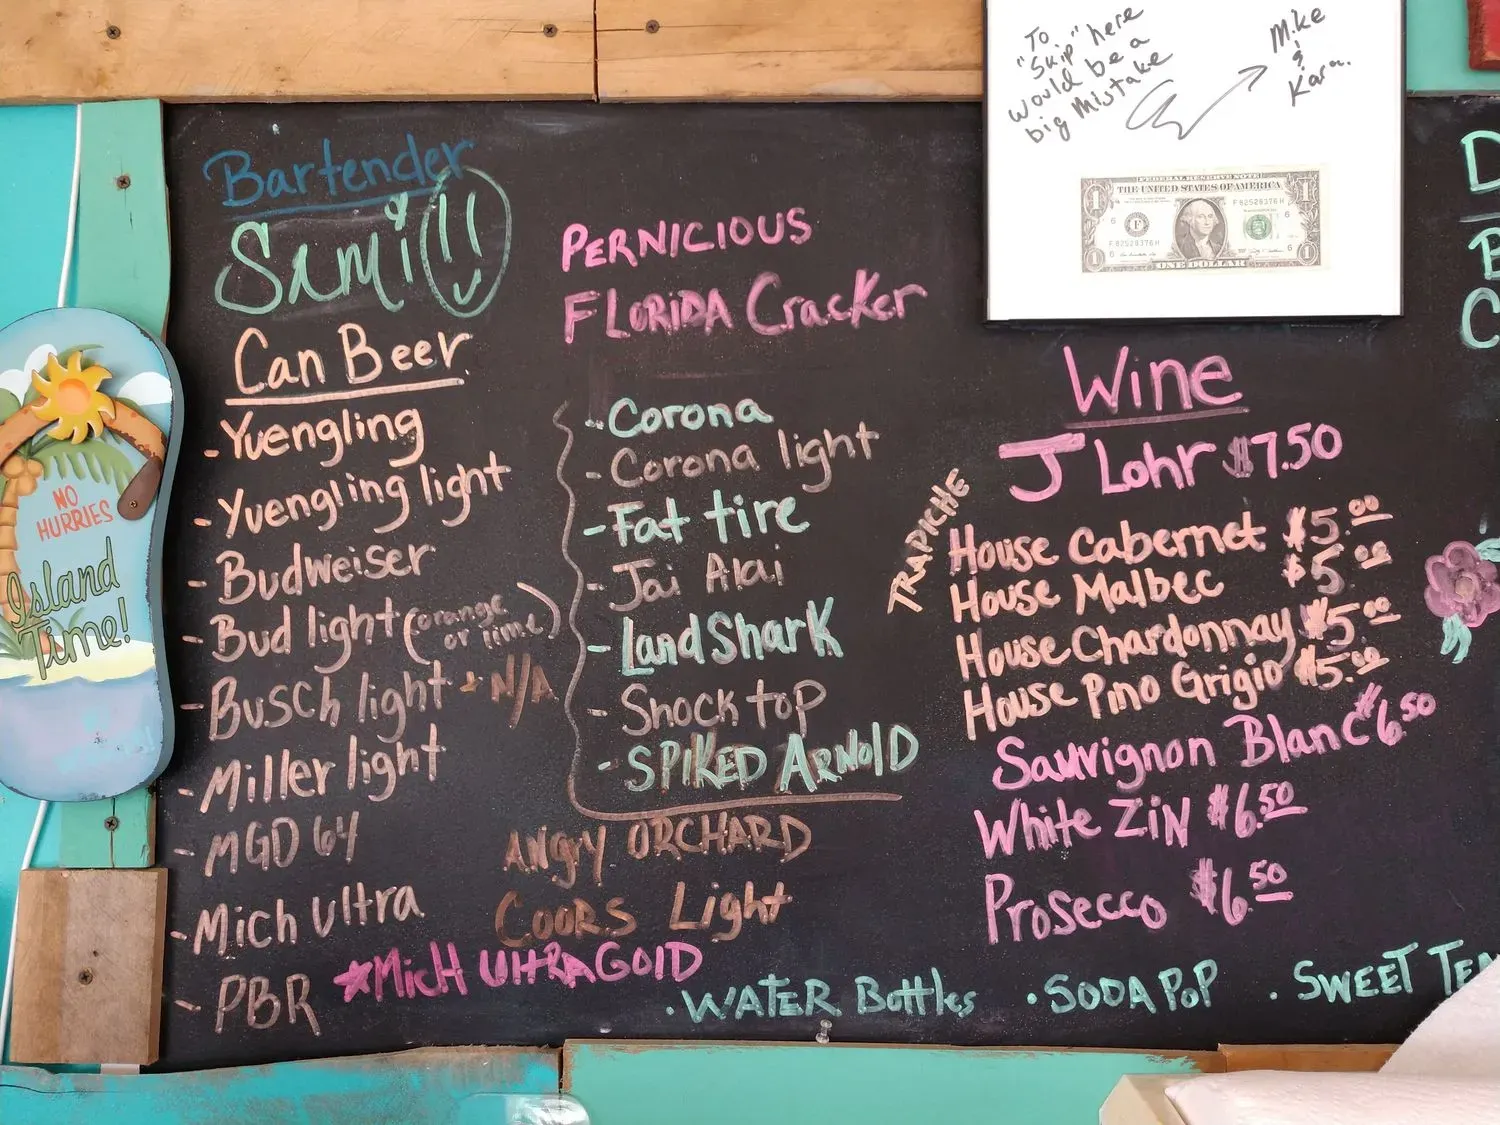 Bartender
Sami!!
Can Beer
- Yuengling
- Yuengling light
- Budweiser
- Bud light (orange or lime)
- Busch light + N/A
- Miller light
- MGD 64
- Mich Ultra
- PBR
*MICH ULTRA GOLD
PERNICIOUS
FLORIDA Cracker
- Corona
- Corona light
- Fat tire
- Jai Alai
- LandShark
- Shock top
- SPIKED ARNOLD
ANGRY ORCHARD
COORS Light
Wine
J Lohr $7.50
TRAPICHE
House Cabernet $5.00
House Malbec $5.00
House Chardonnay $5.00
House Pino Grigio $5.00
Sauvignon Blanc $6.50
White ZIN $6.50
Prosecco $6.50
· WATER Bottles · SODA POP · SWEET TEA
To
"Skip" here
would be a
big Mistake
Mike
&
Kara.
FEDERAL RESERVE NOTE
THE UNITED STATES OF AMERICA
F 82528376 H
F 82528376 H
ONE DOLLAR
NO
HURRIES
Island
Time!
D
B
C